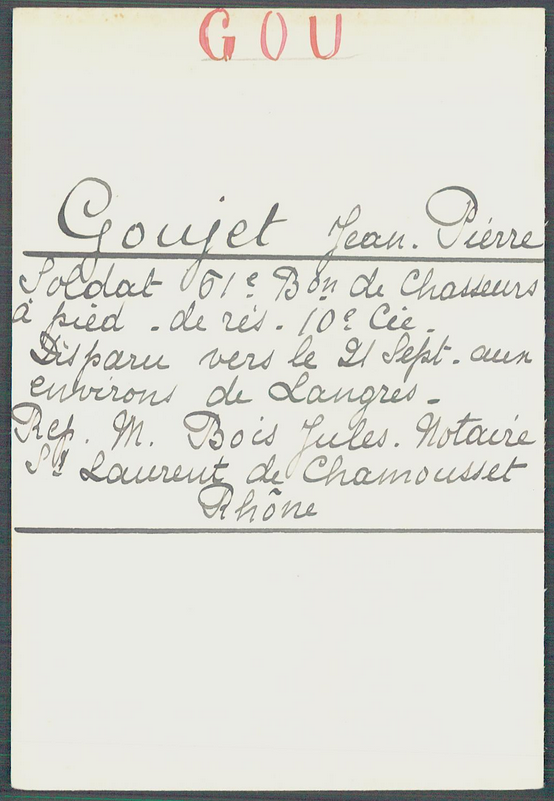 GOU
Goujet Jean-Pierre
Soldat 61e Bon de Chasseurs
à pied - de rés. 10e Cie.
Disparu vers le 21 Sept. aux
environs de Langres.
Rep. M. Bois Jules. Notaire
St Laurent de Chamousset
Rhône